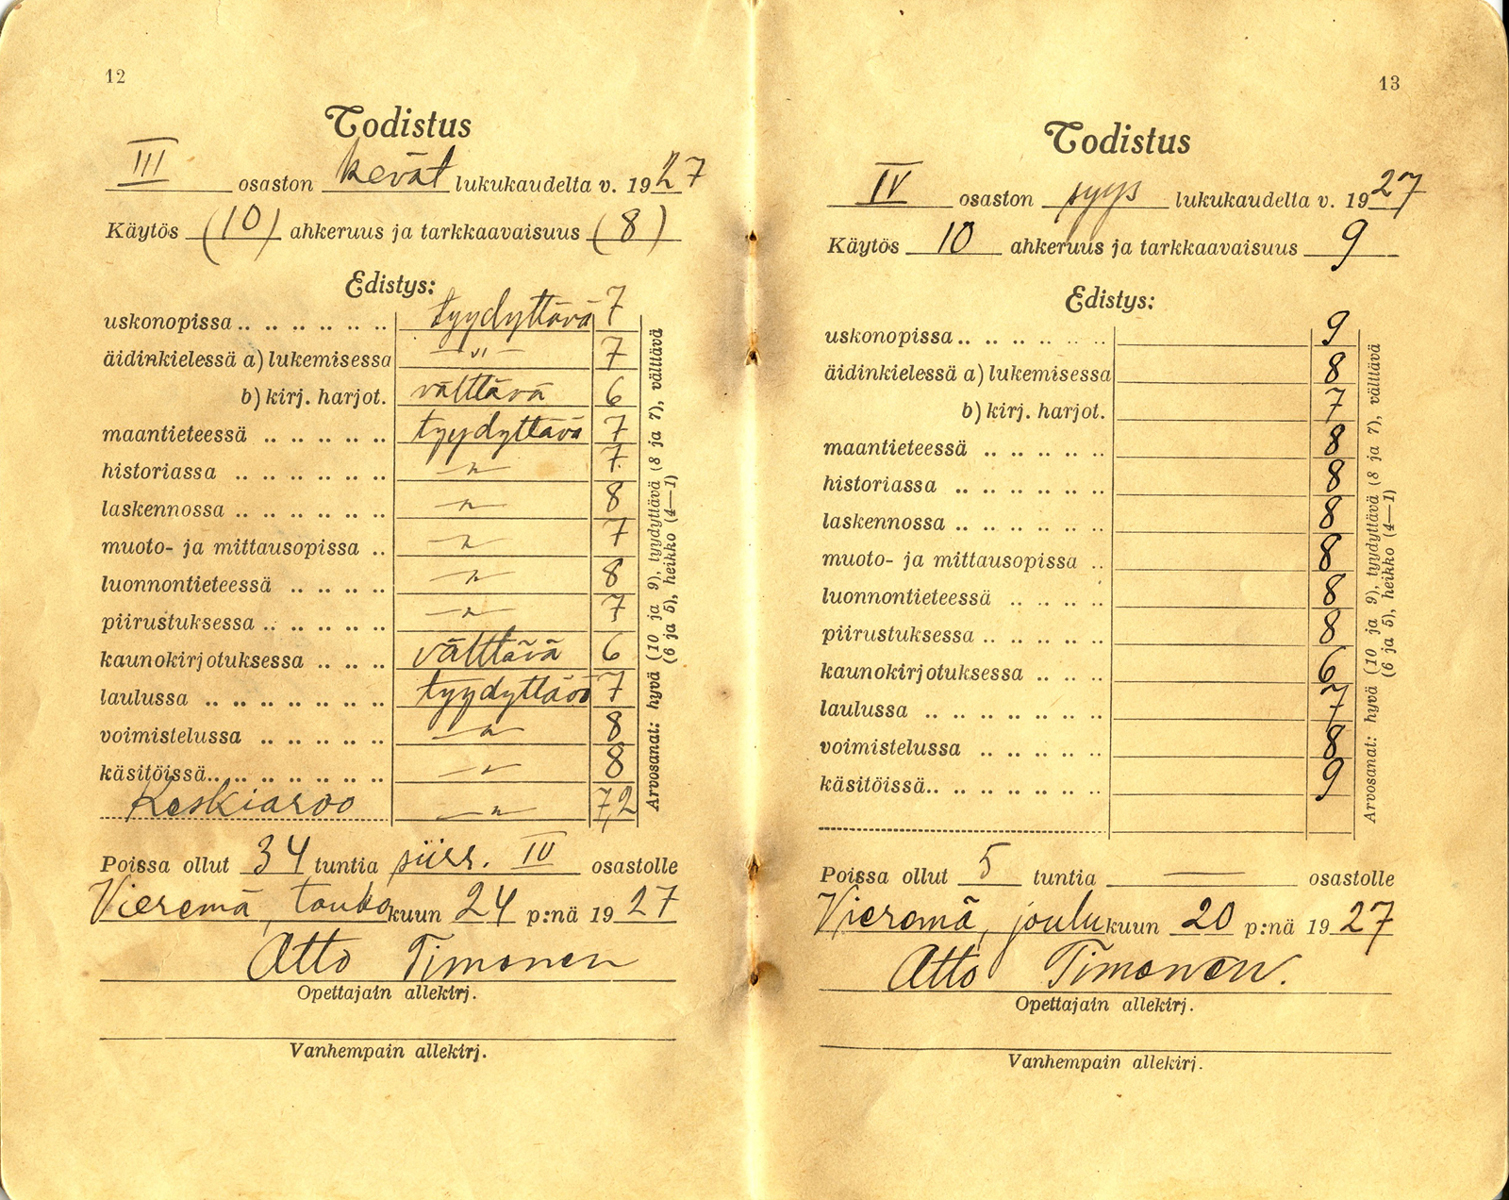 12
Todistus
III osaston kevät lukukaudelta v. 1927
Käytös (10) ahkeruus ja tarkkaavaisuus (8)
Edistys:
uskonopissa .. .. .. .. .. .. .. tyydyttävä 7
äidinkielessä a) lukemisessa —„— 7
b) kirj. harjot. välttävä 6
maantieteessä .. .. .. .. .. tyydyttävä 7
historiassa .. .. .. .. .. .. —„— 7
laskennossa .. .. .. .. .. .. —„— 8
muoto- ja mittausopissa .. —„— 7
luonnontieteessä .. .. .. .. —„— 8
piirustuksessa .. .. .. .. .. —„— 7
kaunokirjotuksessa .. .. .. välttävä 6
laulussa .. .. .. .. .. .. .. tyydyttävä 7
voimistelussa .. .. .. .. .. —„— 8
käsitöissä.. .. .. .. .. .. .. —„— 8
Keskiarvo —„— 7,2
Arvosanat: hyvä (10 ja 9), tyydyttävä (8 ja 7), välttävä
(6 ja 5), heikko (4—1)
Poissa ollut 34 tuntia siirr. IV osastolle
Vieremä, toukokuun 24 p:nä 1927
Otto Timonen
Opettajain allekirj.
Vanhempain allekirj.
13
Todistus
IV osaston syys lukukaudelta v. 1927
Käytös 10 ahkeruus ja tarkkaavaisuus 9
Edistys:
uskonopissa .. .. .. .. .. .. .. 9
äidinkielessä a) lukemisessa 8
b) kirj. harjot. 7
maantieteessä .. .. .. .. .. 8
historiassa .. .. .. .. .. .. 8
laskennossa .. .. .. .. .. .. 8
muoto- ja mittausopissa .. 8
luonnontieteessä .. .. .. .. 8
piirustuksessa .. .. .. .. .. 8
kaunokirjotuksessa .. .. .. 6
laulussa .. .. .. .. .. .. .. 7
voimistelussa .. .. .. .. .. 8
käsitöissä.. .. .. .. .. .. .. 9
Arvosanat: hyvä (10 ja 9), tyydyttävä (8 ja 7), välttävä
(6 ja 5), heikko (4—1)
Poissa ollut 5 tuntia — osastolle
Vieremä, joulukuun 20 p:nä 1927
Otto Timonen.
Opettajain allekirj.
Vanhempain allekirj.